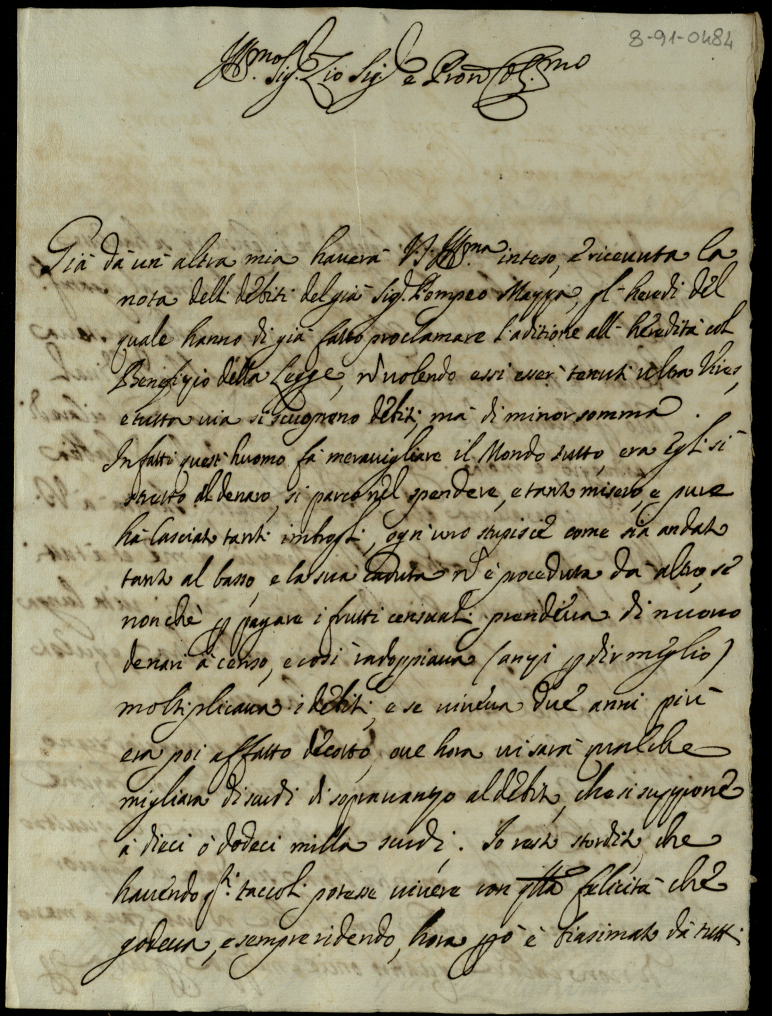 8-91-0484
Ill.mo Sig. Zio Sig. e Pron Col.mo
Già dà un' altra mia haverà V.S. Ill.ma inteso, e ricevuta la
nota delli debiti del già Sig. Pompeo Mazza, gl' heredi del
quale hanno di già fatto proclamare l'aditione all' heredità col
Benefizio della Legge, nō volendo essi esser tenuti ultra Vires,
e tutta via si scuoprono debiti, mà di minor somma.
In fatti quest' huomo fà meravigliare il Mondo tutto, era Egli sì
stretto al denaro, sì parco nel spendere, e tanto misero, e pure
hà lasciato tanti imbrogli, ogn' uno stupisce come sia andato
tanto al basso, e la sua caduta nō è proceduta dà altro, se
non chè p pagare i frutti censuali prendeva di nuovo
denari à censo, e così radoppiava (anzi p dir meglio)
moltiplicava i debiti, e se viveva due anni più
era poi affatto decotto, ove hora vi sarà qualche
migliara di scudi di sopravanzo al debito, che si suppone
à dieci ò dodeci milla scudi. Io resto stordito che
havendo q.ti taccoli potesse vivere con felicità che
godeva, e sempre ridendo, hora pò è biasimato dà tutti